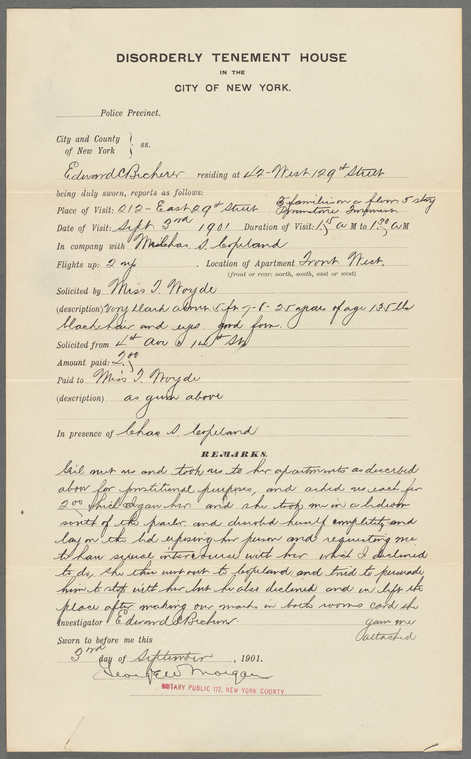 DISORDERLY TENEMENT HOUSE
IN THE
CITY OF NEW YORK.
Police Precinct.
City and County
of New York } ss.
Edward C Becherer residing at 42-West 129th Street
being duly sworn, reports as follows:
Place of Visit: 212- East 29th Street 5 families on a floor 5 story
Brownstone
Date of Visit: Sept 3rd 1901 Duration of Visit: 1.15 a M to 1.30 a M
In company with Chas. S. Copeland
Flights up: 2 up . Location of Apartment Front West.
(front or rear: north, south, east or west)
Solicited by Miss T. Woyde
(description) Very dark about 5 ft 7-8 - 25 years of age 135 lbs
black hair and eyes. good form.
Solicited from 4th Ave & 14th St
Amount paid: 2.00
Paid to Miss T. Woyde
(description) as given above
In presence of Chas S. Copeland
REMARKS.
Girl met us and took us to her apartments as described
above for prostitional purposes, and asked us each for
2.00 which I gave her and she took me in a bedroom
south of the parlor and disrobed herself completely and
lay on the bed exposing her person and requesting me
to have sexual intercourse with her which I declined
to do, she then went out to Copeland and tried to persuade
him to stop with her but he also declined and we left the
place after making our marks in both rooms card she
gave me
attached
Investigator Edward C Becherer.
Sworn to before me this
3rd day of September , 1901.
Morgan
NOTARY PUBLIC 177, NEW YORK COUNTY.